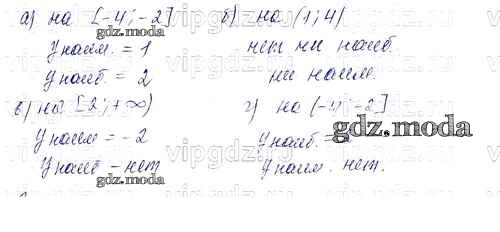 а) на [-4; -2]
y наим. = 1
y наиб. = 2
б) на (1; 4)
нет ни наиб.
ни наим.
в) на [2; +∞)
y наим = -2
y наиб - нет
г) на (-4; -2]
y наиб.
y наим. нет.
gdz.moda
gdz.moda
gdz.moda
gdz.moda
vipgdz.ru